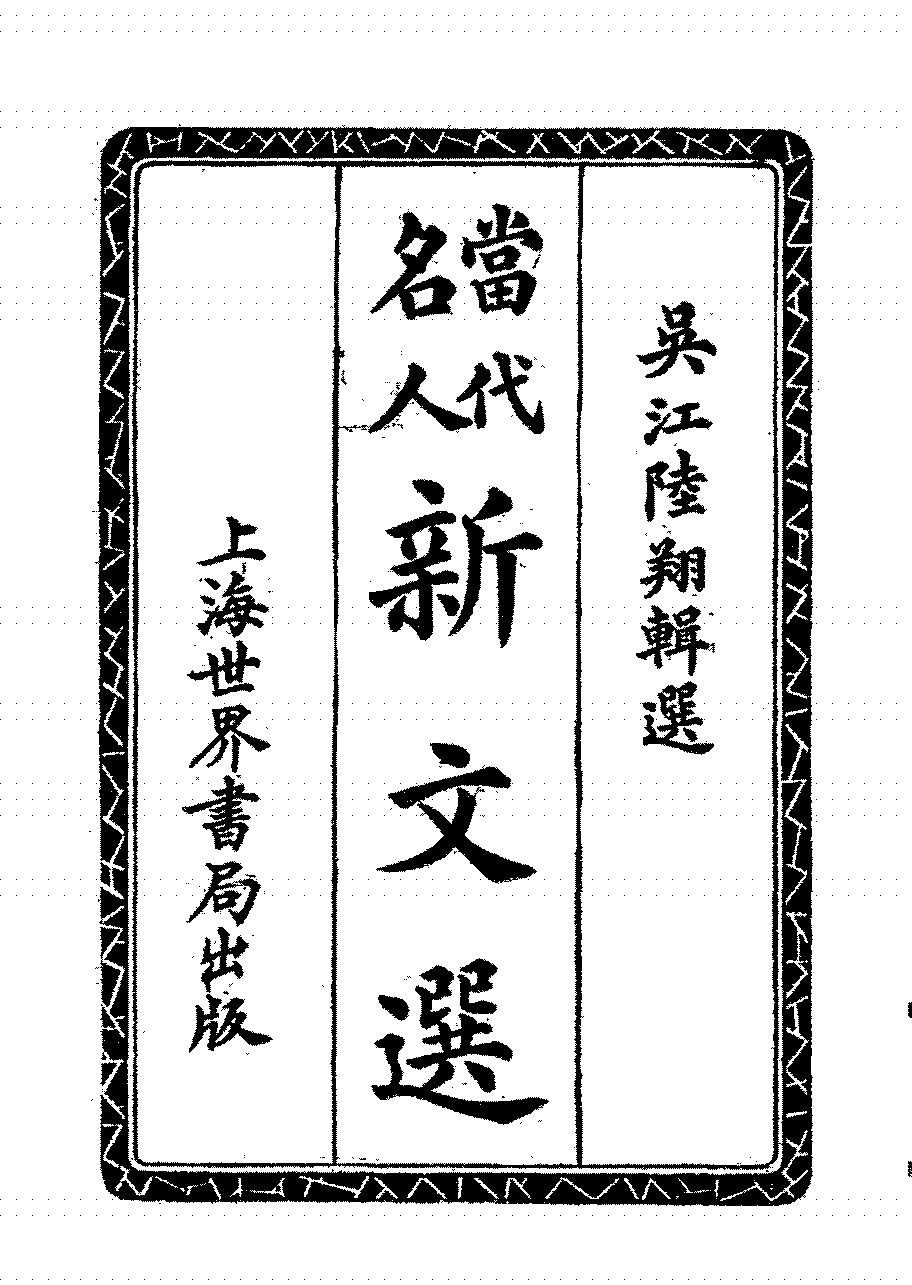 吳江陸翔輯選
當代名人新文選
上海世界書局出版